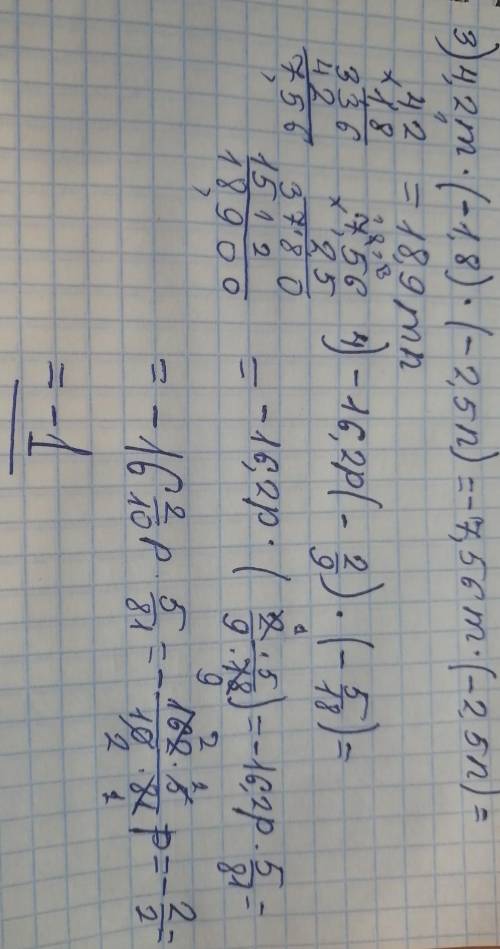 3) 4,2m · (-1,8) · (-2,5n) = -7,56m · (-2,5n) =
= 18,9mn
42
× 18
336
42
756
756
× 25
3780
1512
18900
4) -16,2p(-2/9) · (-5/18) =
= -16,2p · (2·5/9·18) = -16,2p · 5/81 =
= -16 2/10 p · 5/81 = -162·5/10·81 p = -2/2 =
= -1